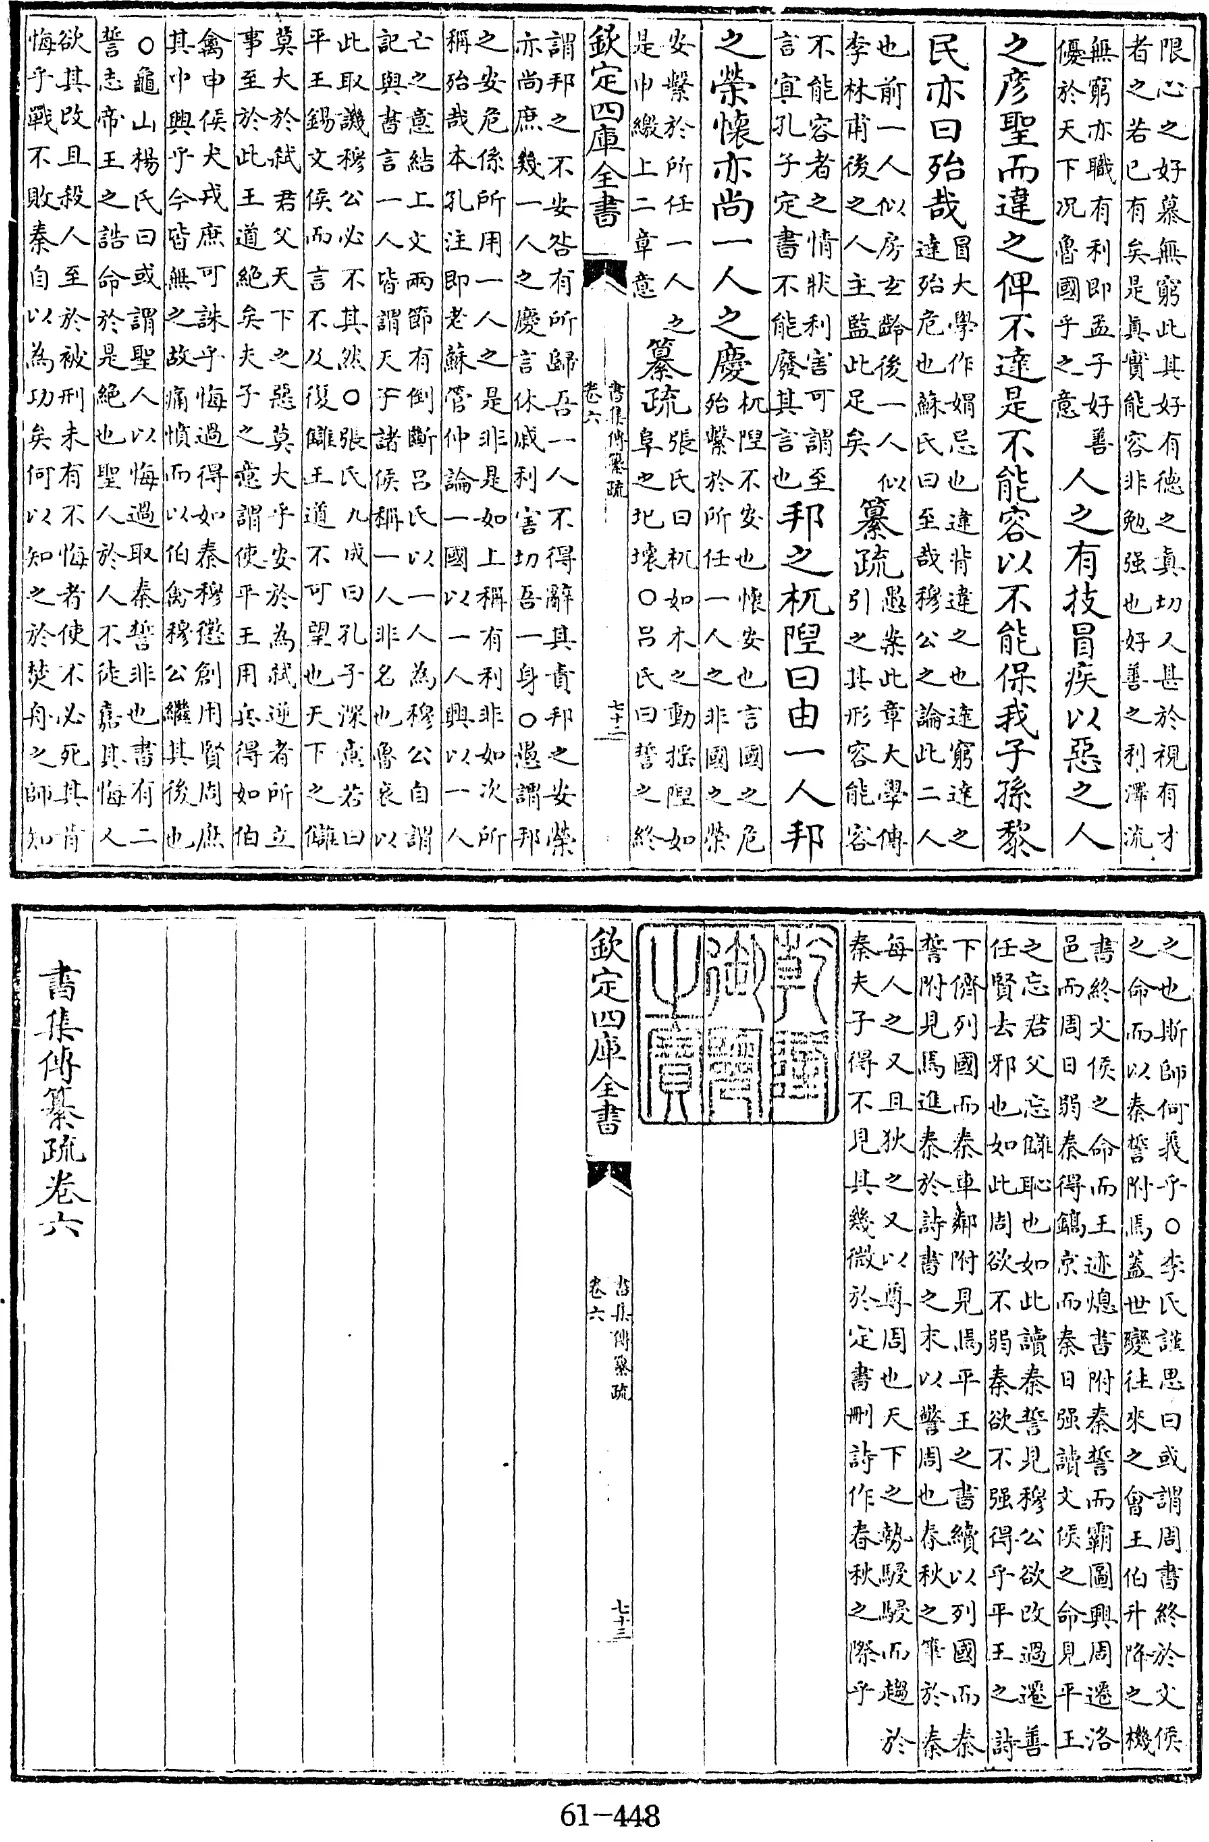 限心之好慕無窮此其好有德之真切又甚於視有才
者之若已有矣是真實能容非勉强也好善之利澤流
無窮亦職有利即孟子好善
優於天下况魯國乎之意
人之有技冒疾以惡之人
之彦聖而違之俾不達是不能容以不能保我子孫黎
民亦曰殆哉
冒大學作媢忌也違背違之也達窮達之
達殆危也蘇氏曰至哉穆公之論此二人
也前一人似房玄齡後一人似
李林甫後之人主監此足矣
纂疏
愚案此章大學傳
引之其形容能容
不能容者之情狀利害可謂至
言宜孔子定書不能廢其言也
邦之杌隉曰由一人邦
之榮懷亦尚一人之慶
杌隉不安也懷安也言國之危
殆繫於所任一人之非國之榮
安繫於所任一人之
是申繳上二章意
纂疏
張氏曰杌如木之動揺隉如
阜之圮壞○呂氏曰誓之終
欽定四庫全書
書集傳纂疏
卷六
七十二
謂邦之不安咎有所歸吾一人不得辭其責邦之安榮
亦尚庶幾一人之慶言休戚利害切吾一身○愚謂邦
之安危係所用一人之是非是如上稱有利非如次所
稱殆哉本孔注即老蘇管仲論一國以一人興以一人
亡之意結上文兩節有倒斷呂氏以一人為穆公自謂
記與書言一人皆謂天子諸侯稱一人非名也魯哀以
此取譏穆公必不其然○張氏九成曰孔子深意若曰
平王錫文侯而言不及復讎王道不可望也天下之讎
莫大於弑君父天下之惡莫大乎安於為弑逆者所立
事至於此王道絶矣夫子之意謂使平王用兵得如伯
禽申侯犬戎庶可誅乎悔過得如秦穆懲創用賢周庶
其中興乎今皆無之故痛憤而以伯禽穆公繼其後也
○龜山楊氏曰或謂聖人以悔過取秦誓非也書有二
誓志帝王之誥命於是絶也聖人於人不徒嘉其悔人
欲其改且殺人至於被刑未有不悔者使不必死其肯
悔乎戰不敗秦自以為功矣何以知之於焚舟之師知
之也斯師何義乎○李氏謹思曰或謂周書終於文侯
之命而以秦誓附焉蓋世變往來之會王伯升降之機
書終文侯之命而王迹熄書附秦誓而霸圖興周遷洛
邑而周日弱秦得鎬京而秦日强讀文侯之命見平王
之忘君父忘讎恥也如此讀秦誓見穆公欲改過遷善
任賢去邪也如此周欲不弱秦欲不强得乎平王之詩
下儕列國而秦車鄰附見焉平王之書續以列國而秦
誓附見焉進秦於詩書之末以警周也春秋之筆於秦
每人之又且狄之又以尊周也天下之勢駸駸而趨於
秦夫子得不見其幾微於定書刪詩作春秋之際乎
乾隆御覽之寶
欽定四庫全書
書集傳纂疏
卷六
七十三
書集傳纂疏卷六
61-448